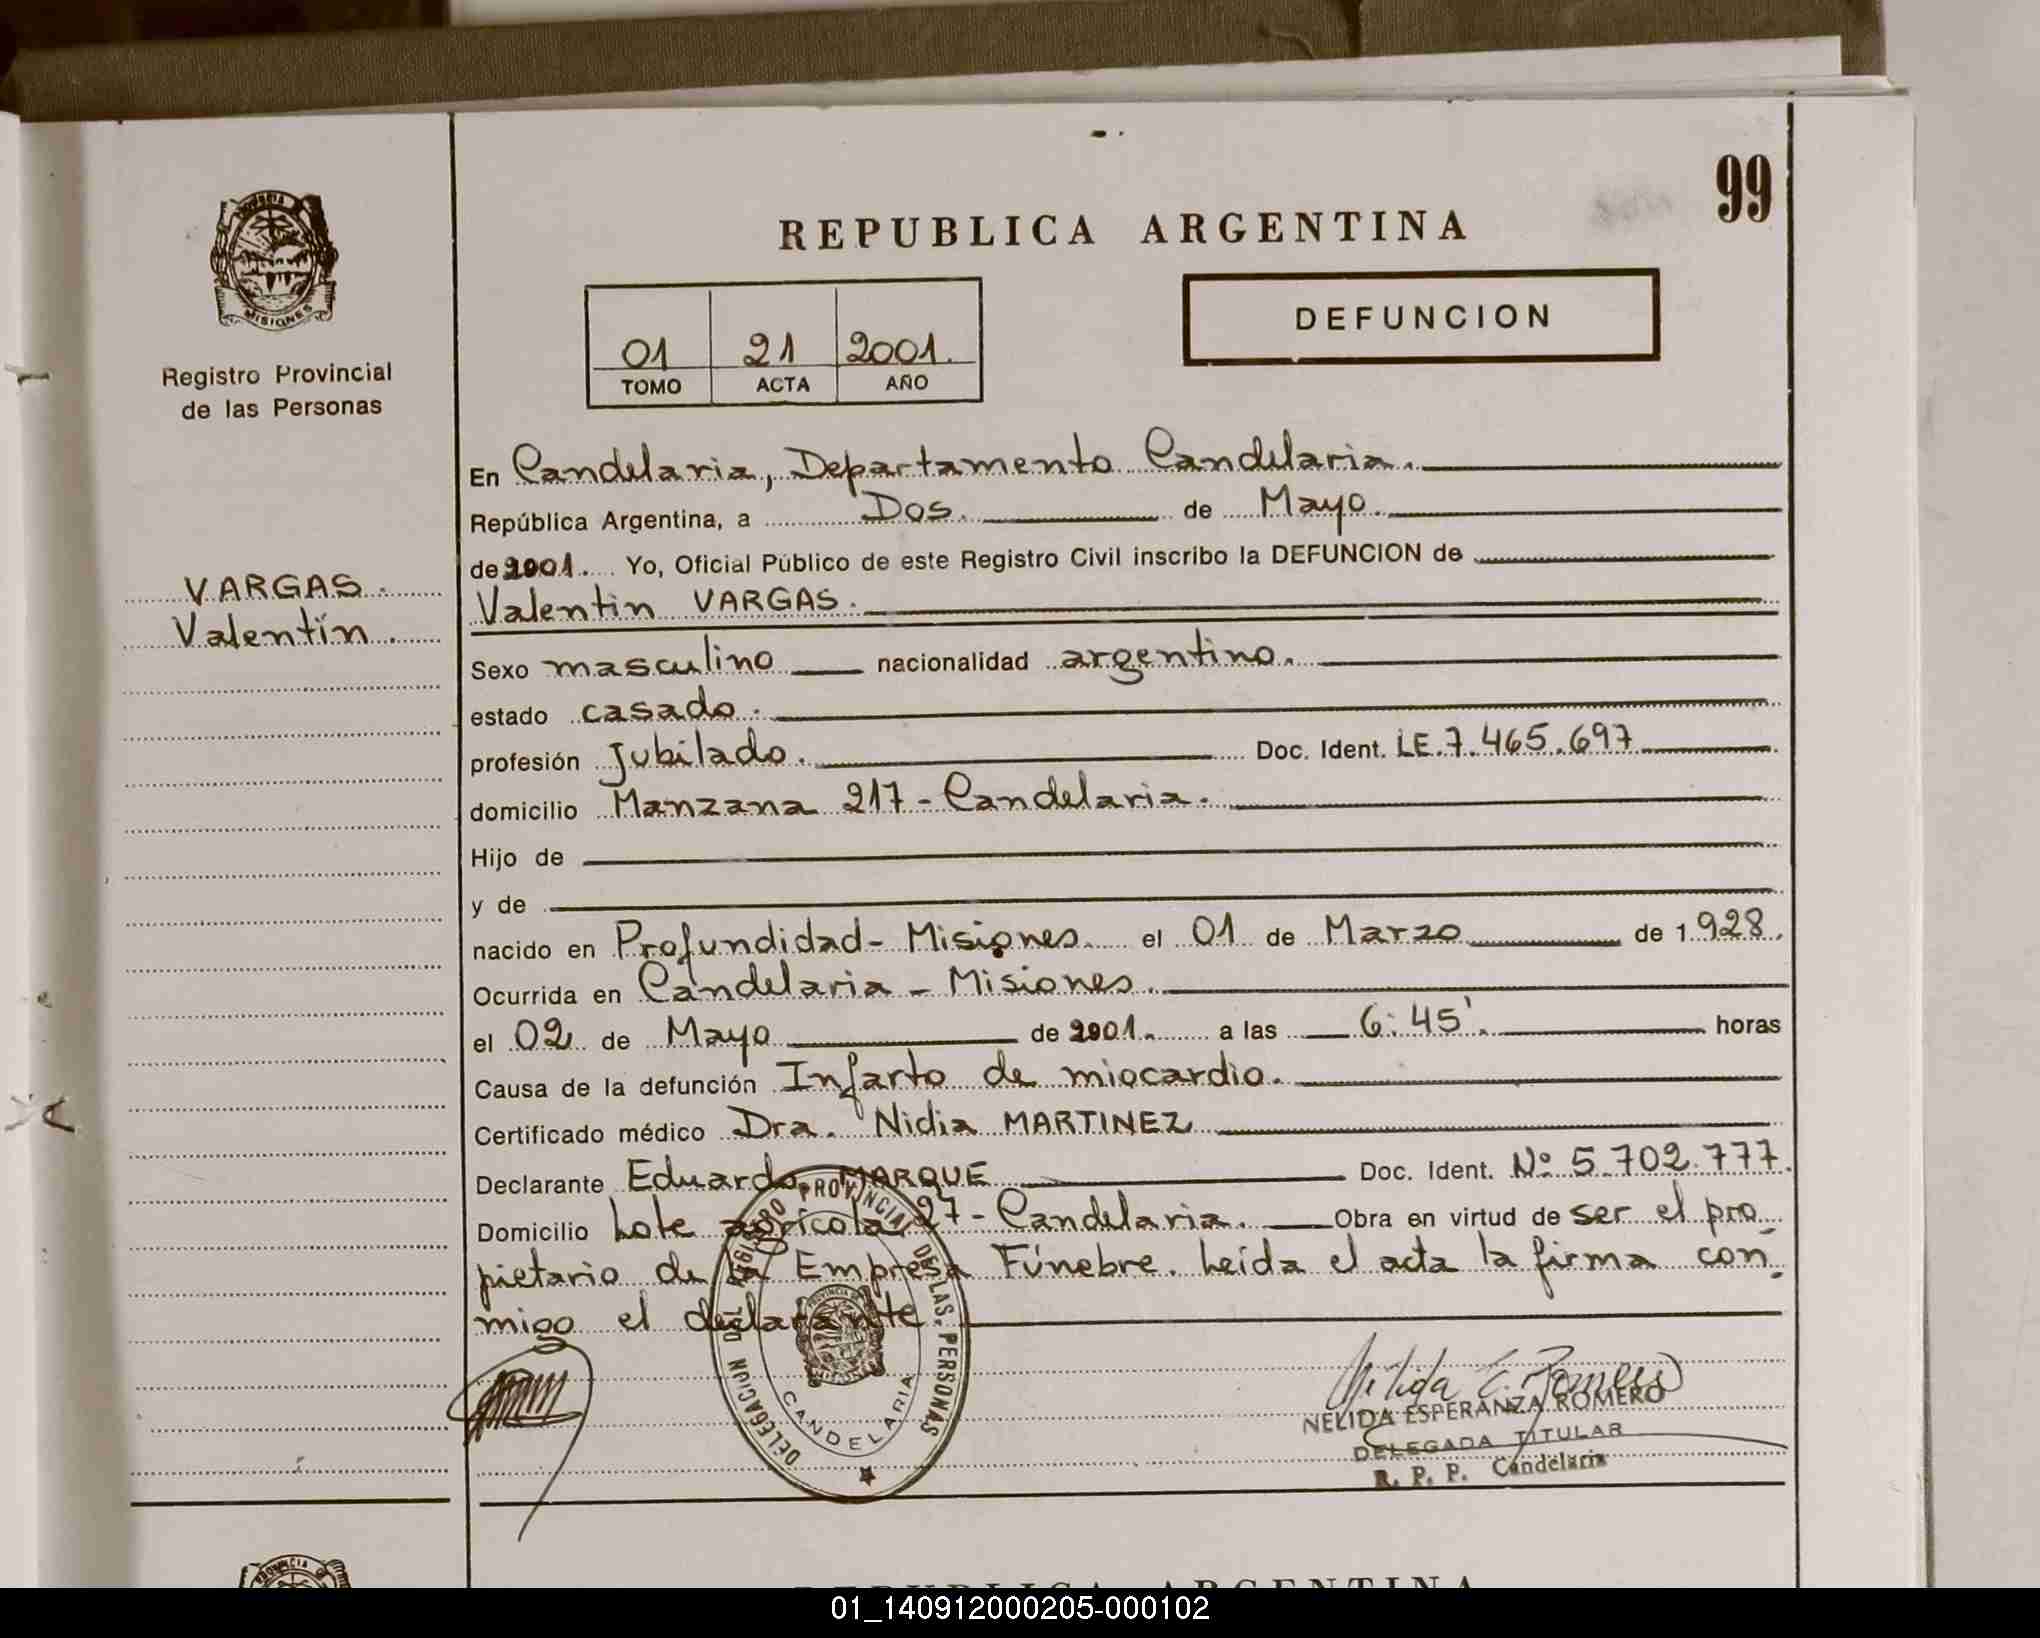 99
REPUBLICA ARGENTINA
MISIONES
Registro Provincial
de las Personas
01 21 2001.
TOMO ACTA AÑO
DEFUNCION
VARGAS.
Valentín.
En Candelaria, Departamento Candelaria.
República Argentina, a Dos. de Mayo.
de 2001. Yo, Oficial Público de este Registro Civil inscribo la DEFUNCION de
Valentín VARGAS.
Sexo masculino nacionalidad argentino.
estado casado.
profesión Jubilado. Doc. Ident. LE.7.465.697
domicilio Manzana 217- Candelaria.
Hijo de
y de
nacido en Profundidad- Misiones. el 01 de Marzo de 1.928.
Ocurrida en Candelaria - Misiones.
el 02 de Mayo de 2001. a las 6:45'. horas
Causa de la defunción Infarto de miocardio.
Certificado médico Dra. Nidia MARTINEZ
Declarante Eduardo MARQUE Doc. Ident. Nº 5.702.777.
Domicilio Lote agrícola 27- Candelaria. Obra en virtud de ser el pro-
pietario de la Empresa Fúnebre. Leída el acta la firma con-
migo el declarante.
DELEGACION DEL REGISTRO PROVINCIAL DE LAS PERSONAS
CANDELARIA
NELIDA ESPERANZA ROMERO
DELEGADA TITULAR
R. P. P. Candelaria
REPUBLICA ARGENTINA
01_140912000205-000102